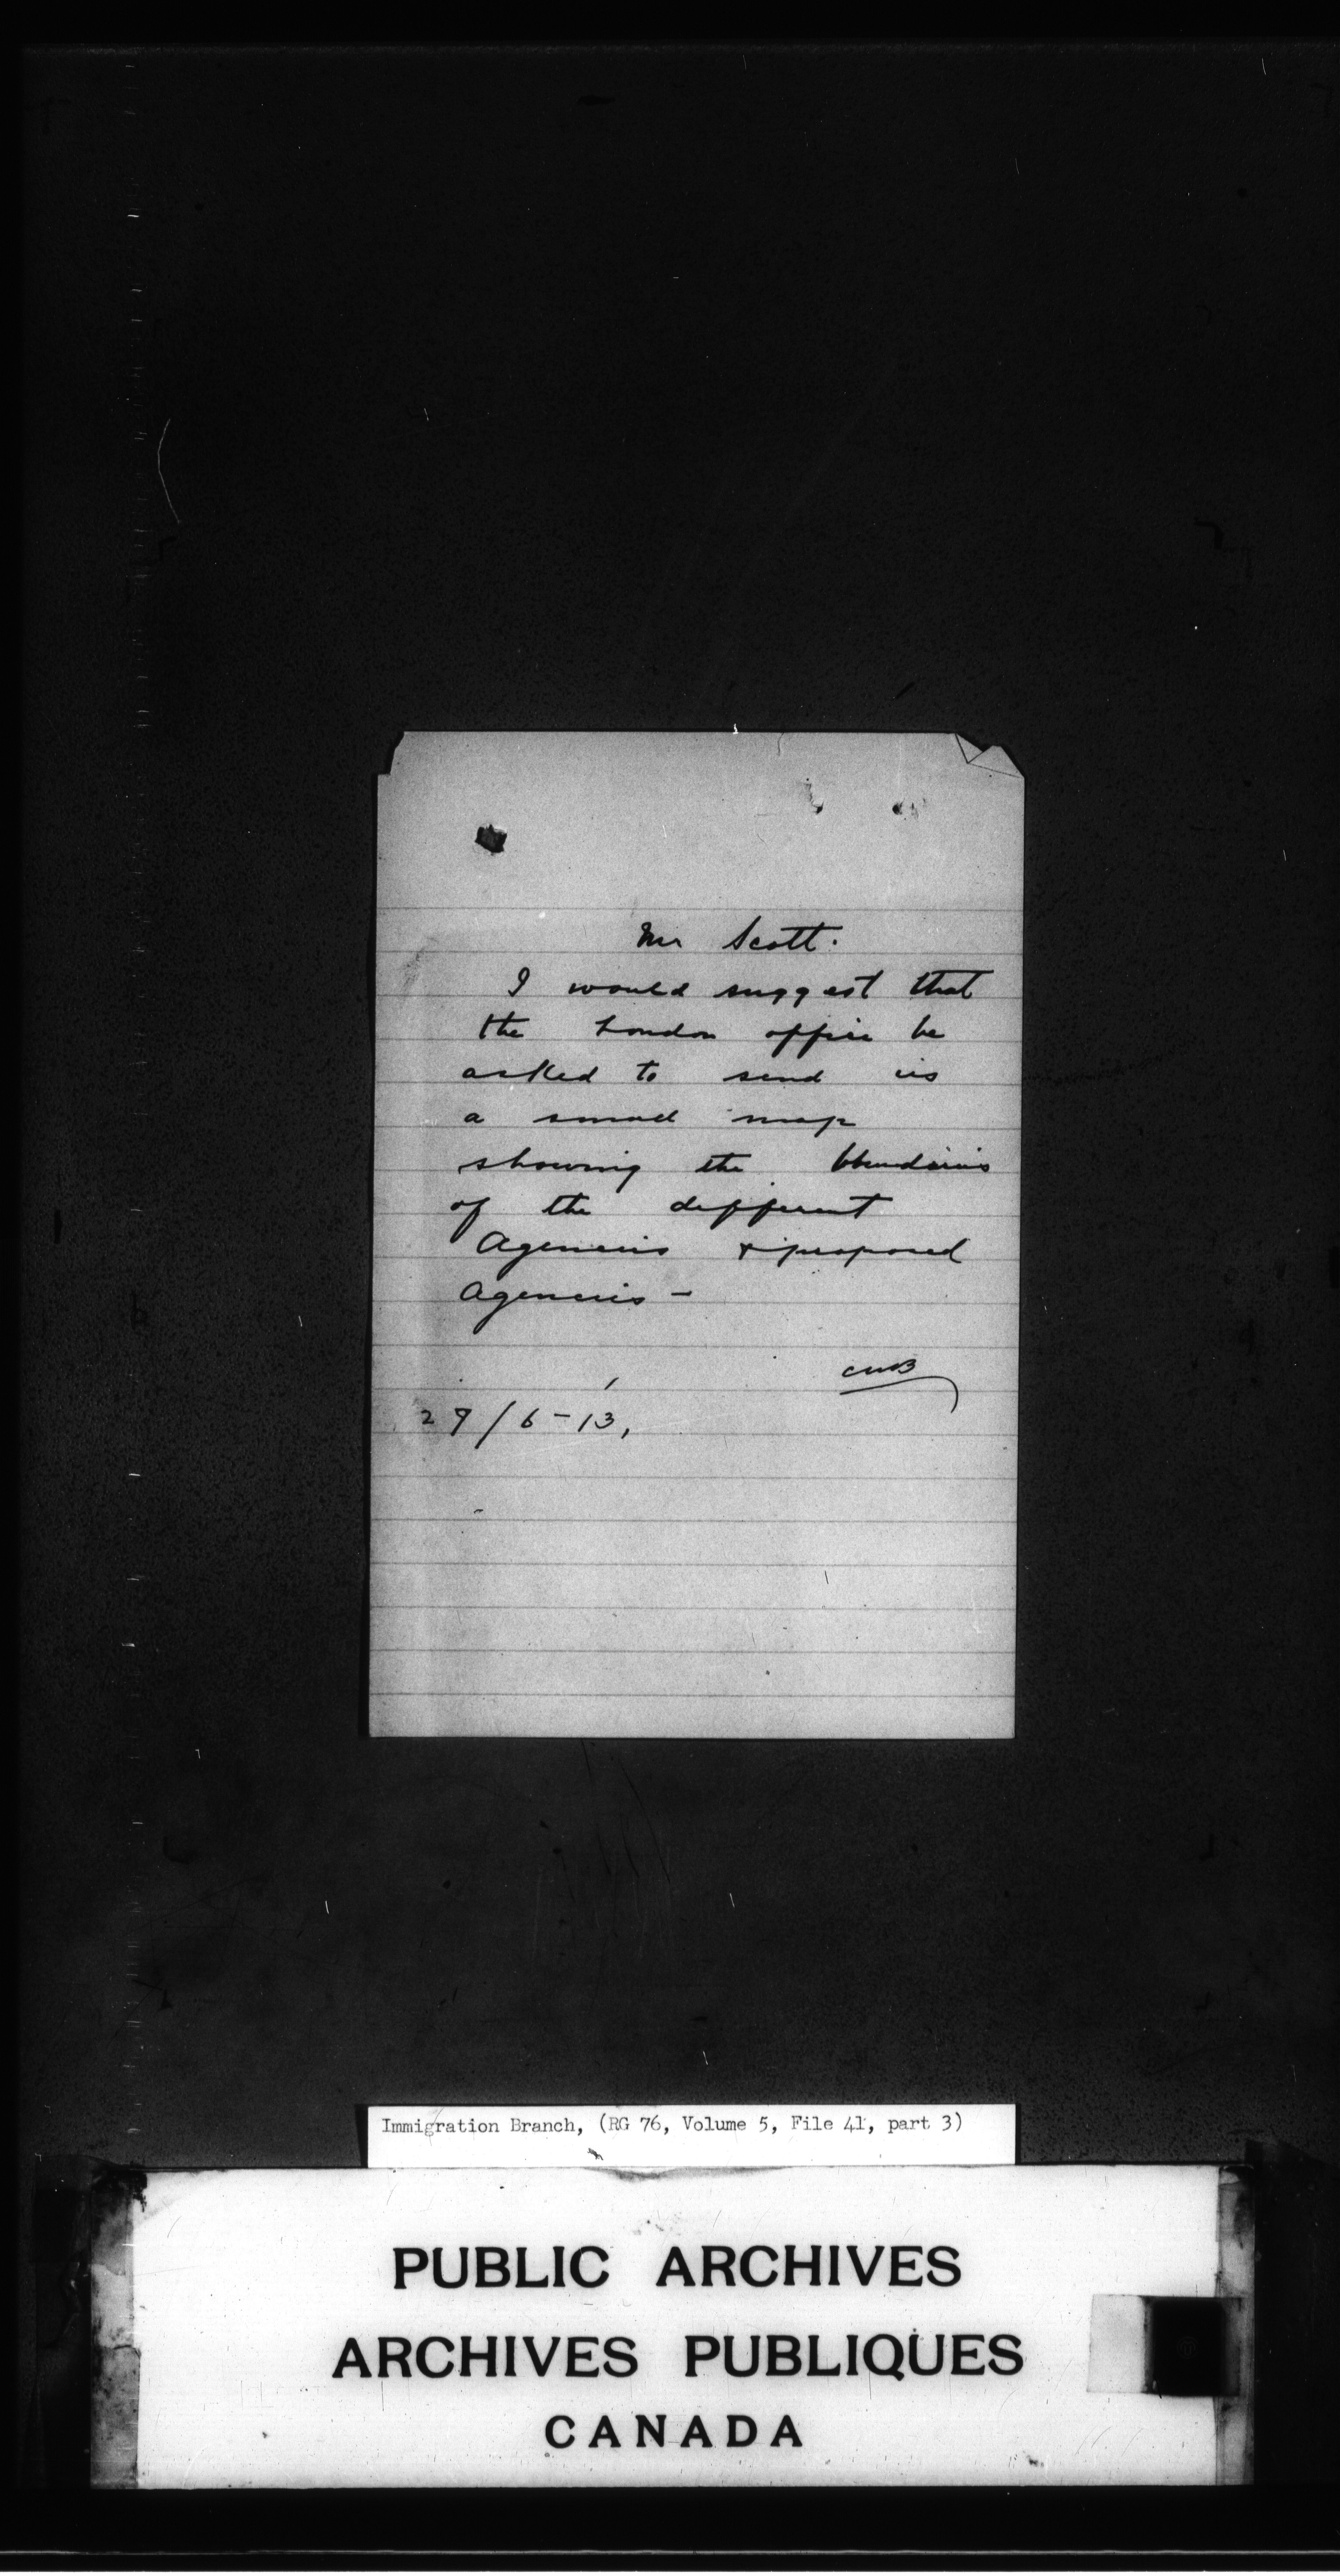 Mr Scott.
I would suggest that
the London office be
asked to send us
a small map
showing the boundaries
of the different
Agencies & proposed
Agencies -
CWB
29/6-13,
Immigration Branch, (RG 76, Volume 5, File 41, part 3)
PUBLIC ARCHIVES
ARCHIVES PUBLIQUES
CANADA